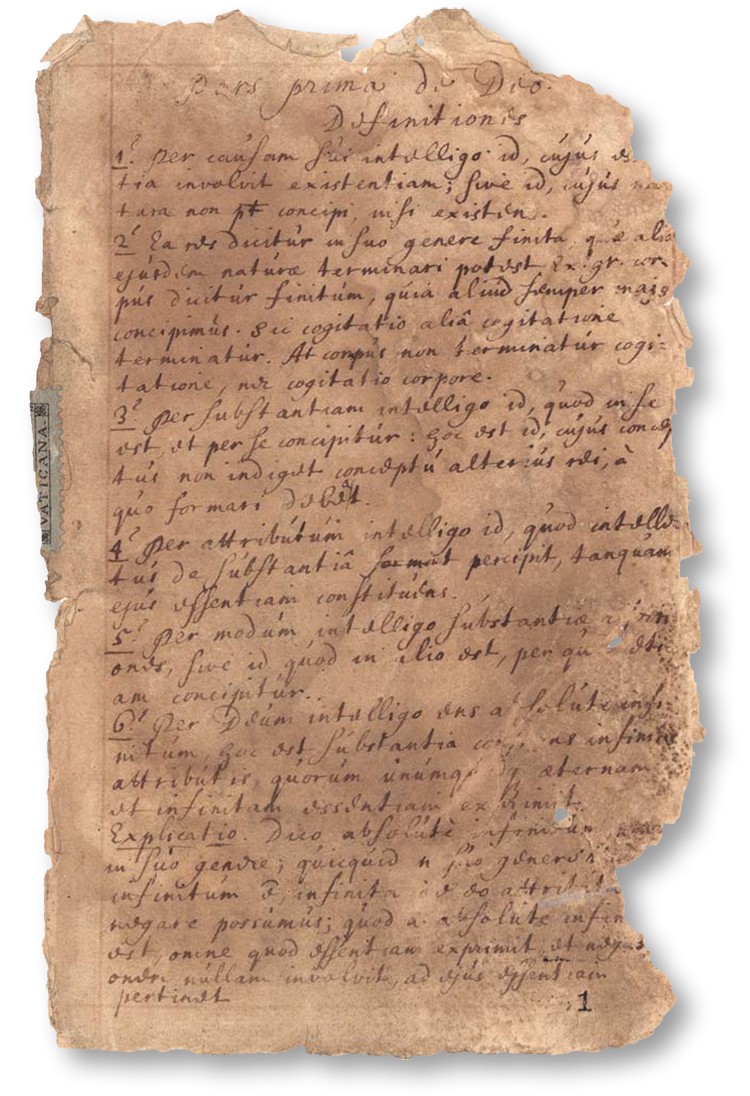 Pars prima de Deo.
Definitiones
1. Per causam sui intelligo id, cujus es
tia involvit existentiam; sive id, cujus na
tura non pt concipi, nisi existen.
2. Ea res dicitur in suo genere finita, quæ alia
ejusdem naturæ terminari potest Ex. gr. cor-
pus dicitur finitum, quia aliud semper majus
concipimus. Sic cogitatio aliâ cogitatione
terminatur. At corpus non terminatur cogi-
tatione, nec cogitatio corpore.
3. Per substantiam intelligo id, quod in se
est, et per se concipitur: hoc est id, cujus concep
tus non indiget conceptu alterius rei, à
quo formari debet.
4. Per attributum intelligo id, quod intelle-
tus de substantiâ percipit, tanquam
ejus essentiam constituens.
5. Per modum intelligo substantiæ a
ones, sive id quod in alio est, per qu eti
am concipitur.
6. Per Deum intelligo ens a solute infi
nitum, hoc est substantia co ns infinit
attributis, quorum unumq dq æternam
et infinitam essentiam ex rimit.
Explicatio. Dico absolutè infinitum
in suo genere; quicquid n suo genere
infinitum ē, infinita de eo attributa
negare possumus; quod a absolute infin
est, omne quod essentiam exprimit, et nega
onem nullam involvit, ad ejus essentiam
pertinet
1
VATICANA.